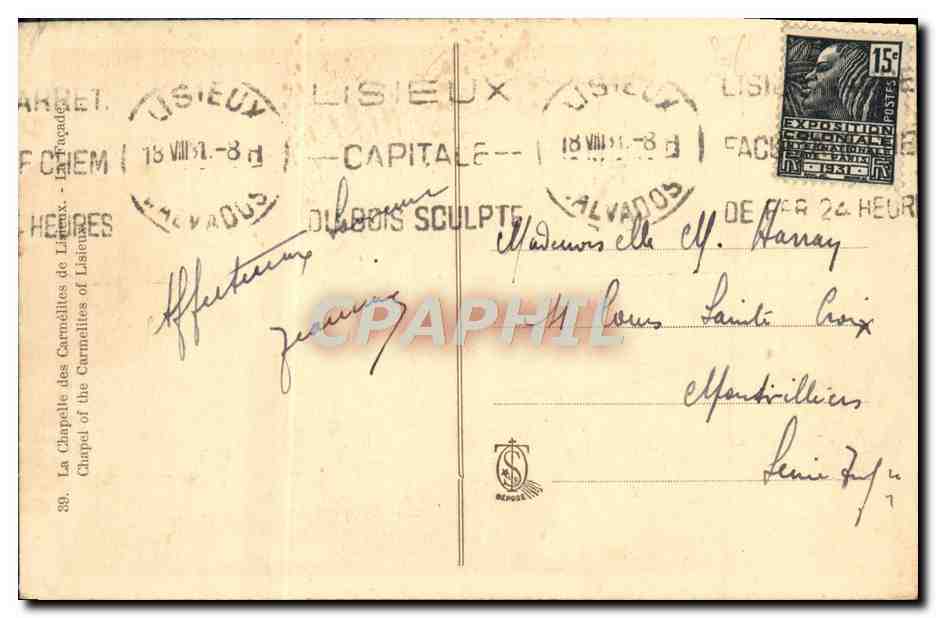 ARRET.
F CHEM
4 HEURES
LISIEUX
18 VIII 31.-8 H
CALVADOS
LISIEUX
--CAPITALE--
DU BOIS SCULPTE
LISIEUX
18 VIII 31.-8 H
CALVADOS
LISI
FAC
DE FER 24 HEUR
15c
POSTES
EXPOSITION
COLONIALE
INTERNATIONALE
DE PARIS
1931
39. La Chapelle des Carmélites de Lisieux. - La Façade.
Chapel of the Carmelites of Lisieux.
Affectueux Souvenir
Jeanne
Mademoiselle M. Harray
14 Cours Sainte Croix
Montivilliers
Seine Inf
CPAPHIL
DÉPOSÉ